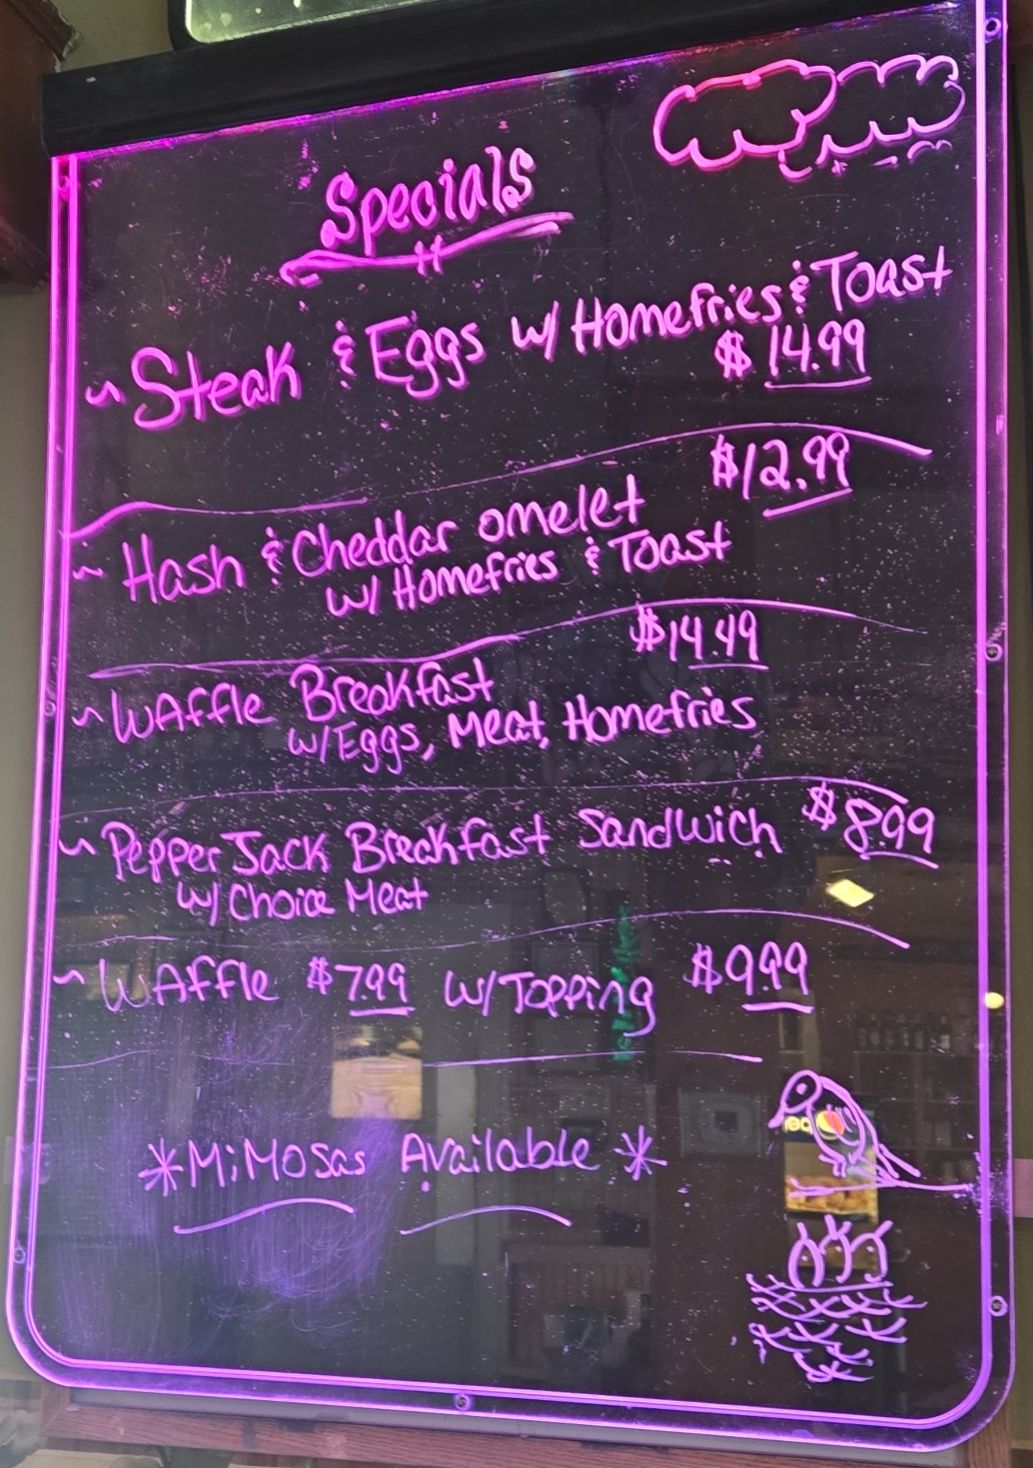 Specials
~ Steak & Eggs w/ Homefries & Toast
$ 14.99
$12.99
~ Hash & Cheddar omelet
w/ Homefries & Toast
$14.49
~ WAffle Breakfast
w/ Eggs, Meat, Homefries
~ Pepper Jack Breakfast Sandwich $8.99
w/ Choice Meat
~ WAffle $7.99 w/ Topping $9.99
*MiMosas Available*